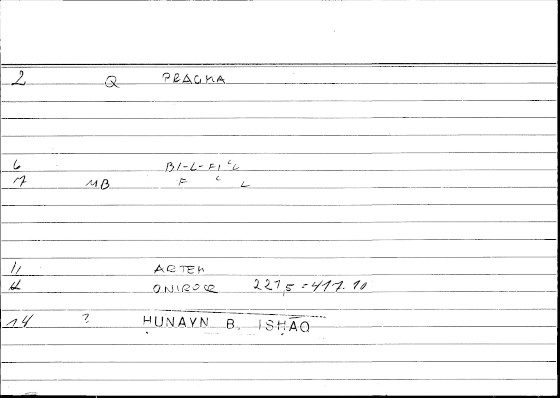 2 Q PRAGMA
6 BI-L-FIʿL
7 MB F ʿ L
11 ARTEM
12 ONIROCR 227,5 = 417.10
14 ? ḤUNAYN B. ISḤĀQ